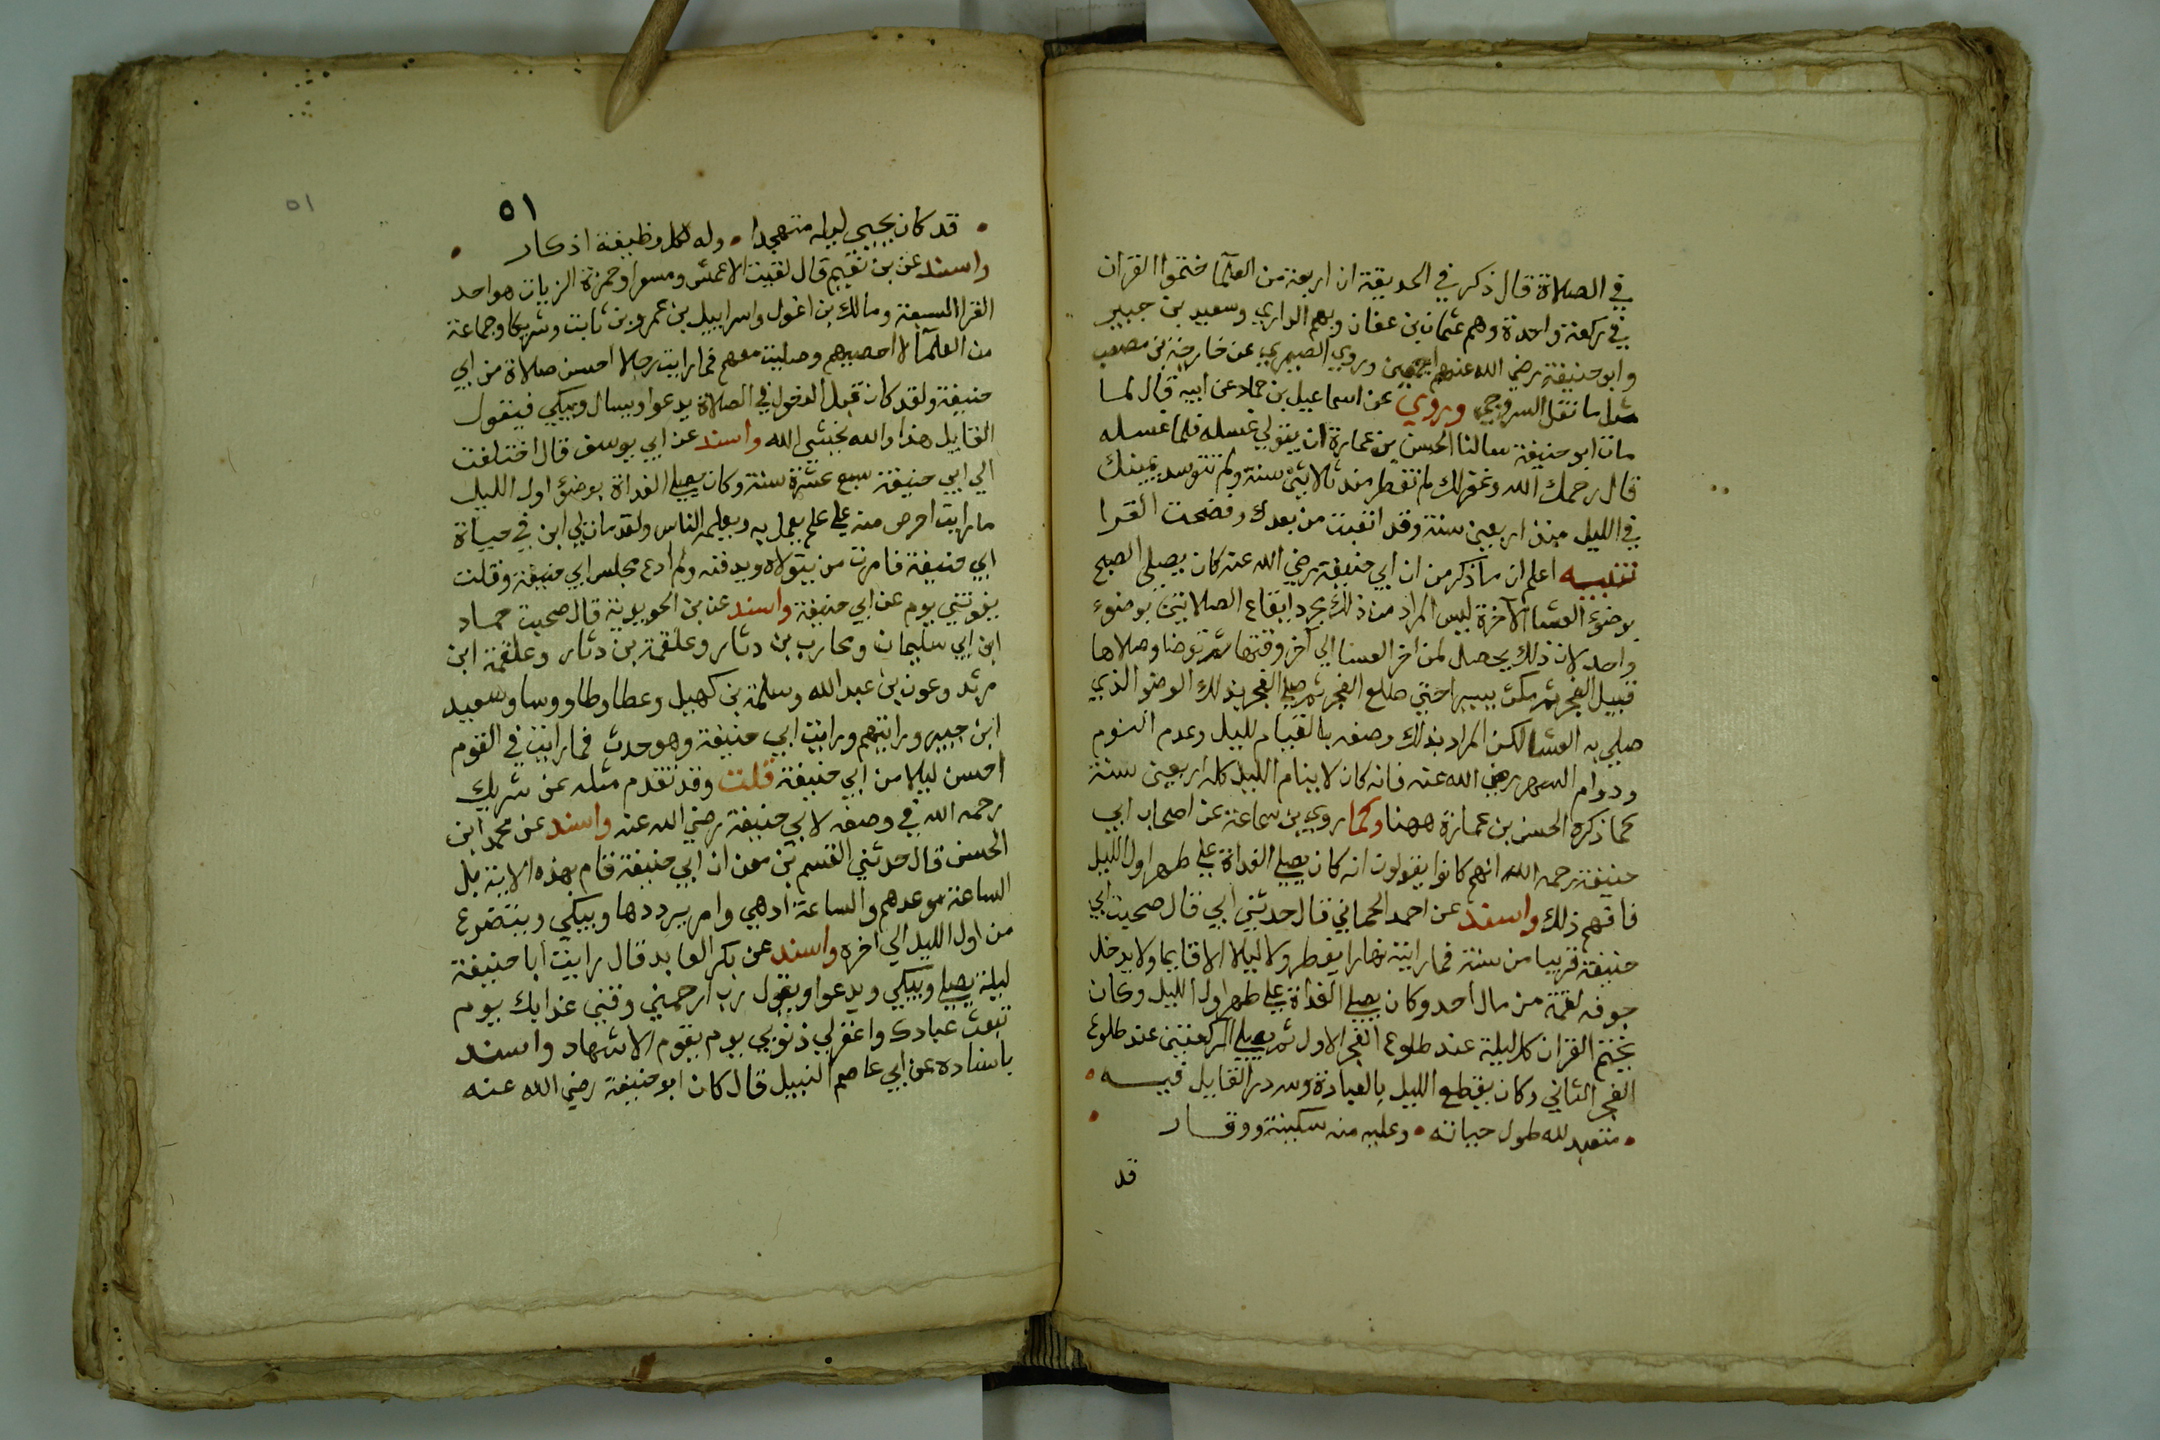 في الصلاة قال ذكر في الحديقة ان اربعة من العلما ختموا القران
في ركعة واحدة وهم عثمان بن عفان وتهم الداري وسعيد بن جبير
وابو حنيفة رضي الله عنهم اجمعين وروي الصيمري عن خارجة بن مصعب
مثل ما نقل السروجي وروي عن اسماعيل بن حماد عن ابيه قال لما
مات ابو حنيفة سالنا الحسن بن عمارة ان يتولي غسله فلما غسله
قال رحمك الله وغفر لك لم تفطر منذ ثلاثين سنة ولم تتوسد يمينك
في الليل منذ اربعين سنة وقد اتعبت من بعدك وفضحت القرا
تنبيه اعلم ان ما ذكر من ان ابي حنيفة رضي الله عنه كان يصلي الصبح
بوضوء العشا الاخرة ليس المراد من ذلك مجرد ايقاع الصلاتين بوضوء
واحد لان ذلك يحصل لمن اخر العشا الي آخر وقتها ثم توضا وصلاها
قبيل الفجر ثم مكث يسيرا حتي طلع الفجر ثم صلي الفجر بذلك الوضو الذي
صلي به العشا لكن المراد بذلك وصفه بالقيام لليل وعدم النوم
ودوام السهر رضي الله عنه فانه كان لا ينام الليل كله اربعين سنة
كما ذكره الحسن بن عمارة ههنا وكما روي بن سماعة عن اصحاب ابي
حنيفة رحمه الله انهم كانوا يقولون انه كان يصلي الغداة علي طهر اول الليل
فافهم ذلك واسند عن احمد الحماني قال حدثني ابي قال صحبت ابي
حنيفة قريبا من سنة فما رايته نهارا يفطر ولا ليلا الا قايما ولا يدخل
جوفه لقمة من مال احد وكان يصلي الغداة علي طهر اول الليل وكان
يختم القران كل ليلة عند طلوع الفجر الاول ثم يصلي الركعتين عند طلوع
الفجر الثاني وكان يقطع الليل بالعبادة وسر در القايل فيه
• متعبد لله طول حياته • وعليه منه سكينة ووقار
قد
٥١
٥١
• قد كان يحيي ليله متهجدا • وله لكل وظيفة اذكار •
واسند عن بن نعيم قال لقيت الاعمش ومسعرا وحمزة الزيات هو احد
القرا السبعة ومالك بن اغول واسراييل بن عمرو بن ثابت وشريكا وجماعة
من العلمآ لا احصيهم وصليت معهم فما رايت رجلا احسن صلاة من ابي
حنيفة ولقد كان قبل الدخول في الصلاة يدعوا ويسال ويبكي فيقول
القايل هذا والله يخشي الله واسند عن ابي يوسف قال اختلفت
الي ابي حنيفة سبع عشرة سنة وكان يصلي الغداة بوضوء اول الليل
ما رايت احرص منه علي علم يعمل به ويعلمه الناس ولقد مات لي ابن في حياة
ابي حنيفة فامرت من يتولاه ويدفنه ولم ادع مجلس ابي حنيفة وقلت
يفوتني يوم عن ابي حنيفة واسند عن بن الحويرية قال صحبت حماد
ابن ابي سليمان ومحارب بن دثار وعلقمة بن دثار وعلقمة ابن
مرثد وعون بن عبد الله وسلمة بن كهيل وعطا وطاووسا وسعيد
ابن جبير ورايتهم ورايت ابي حنيفة وهو حدث فما رايت في القوم
احسن ليلا من ابي حنيفة قلت وقد تقدم مثله عن شريك
رحمه الله في وصفه لابي حنيفة رضي الله عنه واسند عن محمد ابن
الحسن قال حدثني القسم بن معن ان ابي حنيفة قام بهذه الاية بل
الساعة موعدهم والساعة ادهي وامر يرددها ويبكي ويتضرع
من اول الليل الي اخره واسند عن بكر العابد قال رايت ابا حنيفة
ليلة يصلي ويبكي ويدعوا ويقول رب ارحمني وقني عذابك يوم
تبعث عبادك واغفر لي ذنوبي يوم يقوم الاشهاد واسند
باسناده عن ابي عاصم النبيل قال كان ابو حنيفة رضي الله عنه